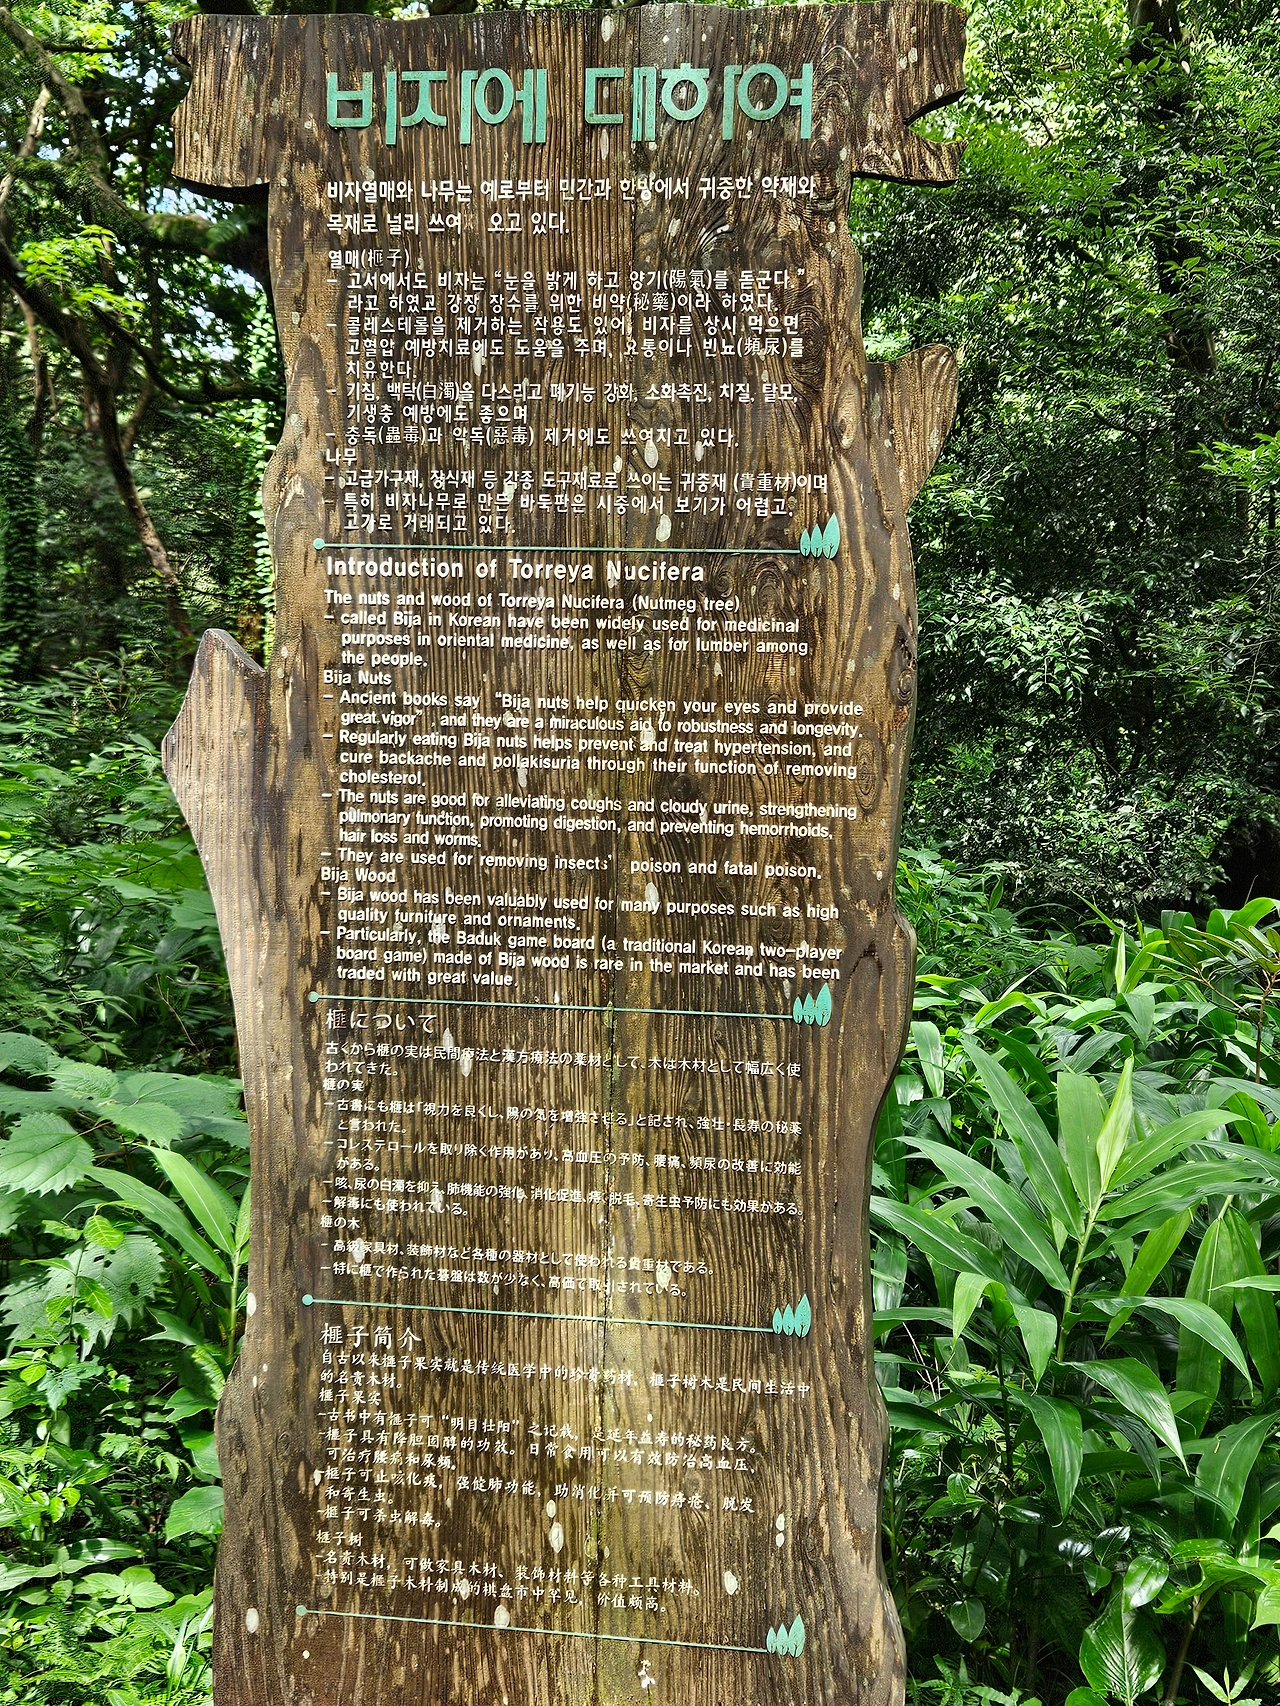 비자에 대하여
비자열매와 나무는 예로부터 민간과 한방에서 귀중한 약재와
목재로 널리 쓰여 오고 있다.
열매(榧子)
- 고서에서도 비자는 “눈을 밝게 하고 양기(陽氣)를 돋군다.”
라고 하였고 강장 장수를 위한 비약(秘藥)이라 하였다.
- 콜레스테롤을 제거하는 작용도 있어, 비자를 상시 먹으면
고혈압 예방치료에도 도움을 주며, 요통이나 빈뇨(頻尿)를
치유한다.
- 기침, 백탁(白濁)을 다스리고 폐기능 강화, 소화촉진, 치질, 탈모,
기생충 예방에도 좋으며
- 충독(蟲毒)과 악독(惡毒) 제거에도 쓰여지고 있다.
나무
- 고급가구재, 장식재 등 각종 도구재료로 쓰이는 귀중재 (貴重材)이며
- 특히 비자나무로 만든 바둑판은 시중에서 보기가 어렵고,
고가로 거래되고 있다.
Introduction of Torreya Nucifera
The nuts and wood of Torreya Nucifera (Nutmeg tree)
- called Bija in Korean have been widely used for medicinal
purposes in oriental medicine, as well as for lumber among
the people.
Bija Nuts
- Ancient books say “Bija nuts help quicken your eyes and provide
great vigor”, and they are a miraculous aid to robustness and longevity.
- Regularly eating Bija nuts helps prevent and treat hypertension, and
cure backache and pollakisuria through their function of removing
cholesterol.
- The nuts are good for alleviating coughs and cloudy urine, strengthening
pulmonary function, promoting digestion, and preventing hemorrhoids,
hair loss and worms.
- They are used for removing insects’ poison and fatal poison.
Bija Wood
- Bija wood has been valuably used for many purposes such as high
quality furniture and ornaments.
- Particularly, the Baduk game board (a traditional Korean two-player
board game) made of Bija wood is rare in the market and has been
traded with great value.
榧について
古くから榧の実は民間療法と漢方療法の薬材として、木は木材として幅広く使
われてきた。
榧の実
- 古書にも榧は「視力を良くし、陽の気を増強させる」と記され、強壮・長寿の秘薬
と言われた。
- コレステロールを取り除く作用があり、高血圧の予防、腰痛、頻尿の改善に効能
がある。
- 咳、尿の白濁を抑え、肺機能の強化、消化促進、痔、脱毛、寄生虫予防にも効果がある。
- 解毒にも使われている。
榧の木
- 高級家具材、装飾材など各種の器材として使われる貴重材である。
- 特に榧で作られた碁盤は数が少なく、高価で取引されている。
榧子简介
自古以来榧子果实就是传统医学中的珍贵药材，榧子树木是民间生活中
的名贵木材。
榧子果实
-古书中有榧子可“明目壮阳”之记载，是延年益寿的秘药良方。
-榧子具有降胆固醇的功效。日常食用可以有效防治高血压，
可治疗腰痛和尿频。
-榧子可止咳化痰，强健肺功能，助消化并可预防痔疮、脱发
和寄生虫。
-榧子可杀虫解毒。
榧子树
-名贵木材，可做家具木材、装饰材料等各种工具材料。
-特别是榧子木料制成的棋盘市中罕见，价值颇高。